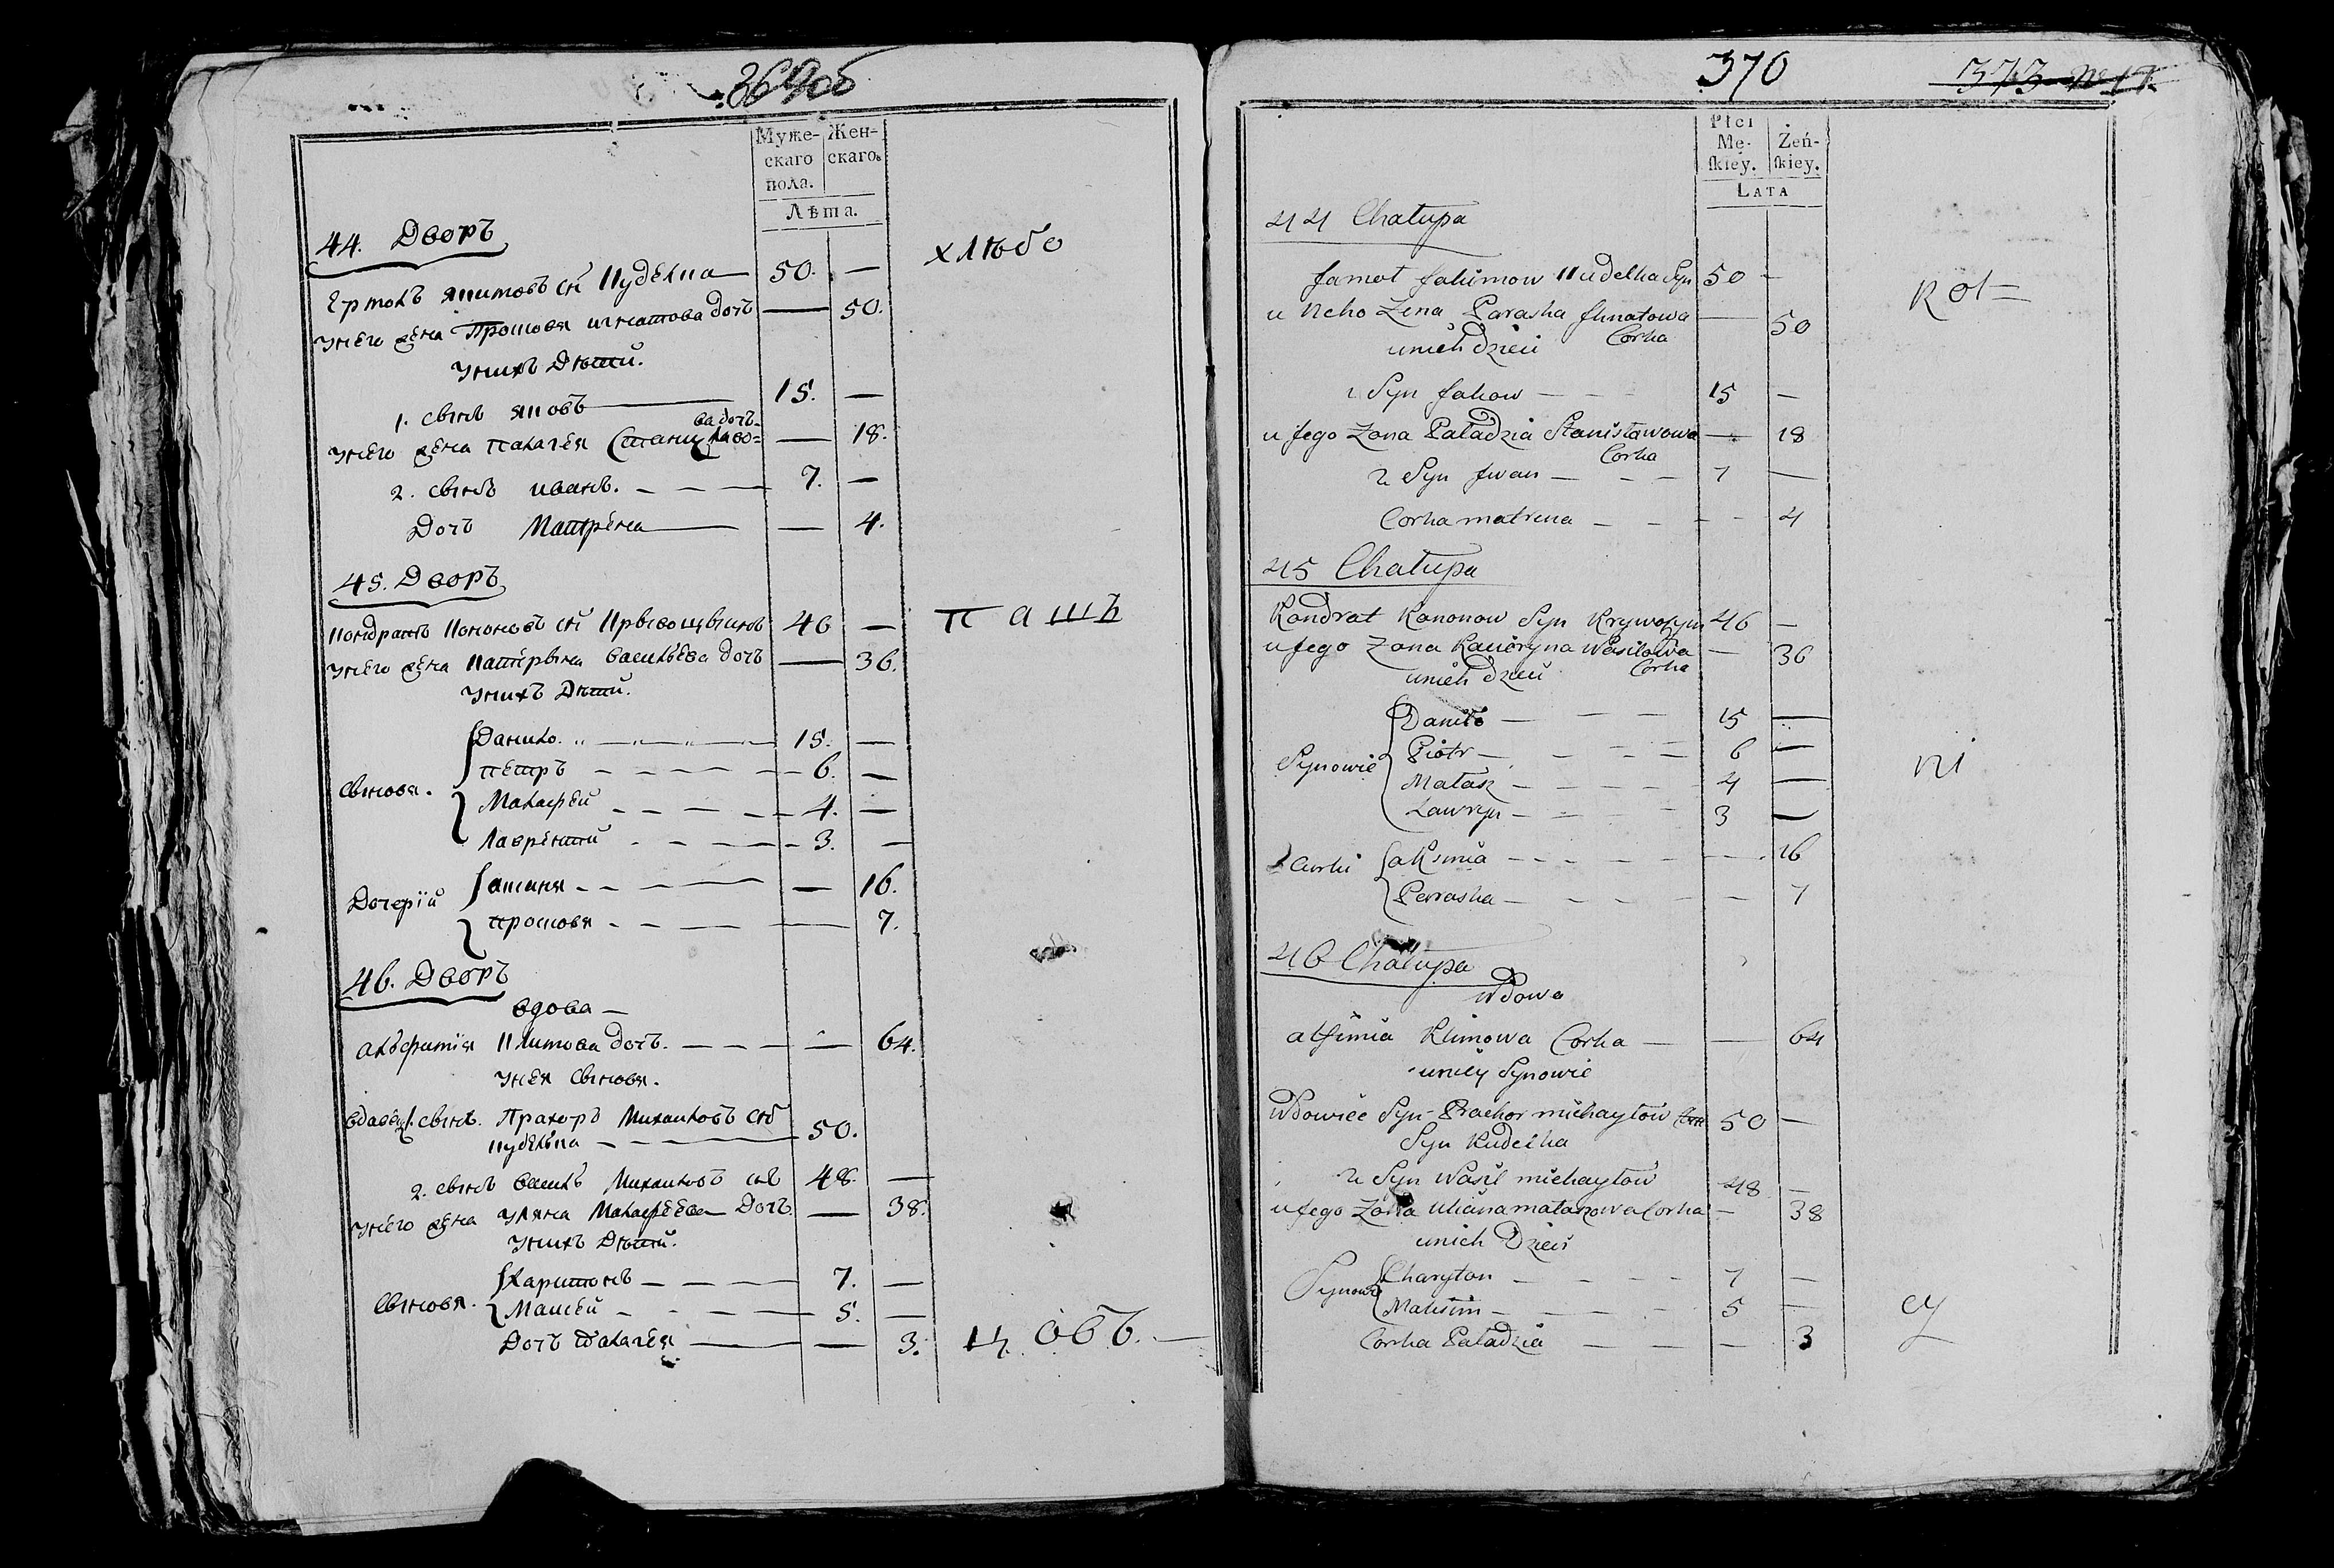 369об
Муже-
скаго
пола.
Жен-
скаго.
Лѣта.
44. Дворъ
Ермолъ якимовъ сн Куделка 50. —
хлѣбо
унего жена Просковя игнатова дочъ — 50.
унихъ Дѣтй.
1. свінъ яковъ 15. —
унего жена палагея Станиславо=
ва дочъ — 18.
2. свінъ иванъ. 7. —
Дочъ Матрена — 4.
45. Дворъ
Кондратъ Кононовъ сн 46 —
пашъ
унего жена Катерына васильева дочъ — 36.
унихъ Дѣтй.
Свіновя.
Данило. 15. —
петръ 6. —
Малафей 4. —
Лаврентй 3. —
Дочерій
аксиня — 16.
просковя 7.
46. Дворъ
вдова —
Климова дочъ. — 64.
унея свіновя.
свінъ. Прахоръ Михаиловъ снъ
Куделка 50.
2. свінъ василъ Михаиловъ снъ 48. —
унего жена уляна Малафеева Дочъ — 38.
унихъ Дѣтй.
Свіновя.
Харитонъ 7. —
Мансей 5. —
Дочъ палагея — 3.
цовъ. —
370
373 № 17.
Płci
Mę-
ſkiey.
Żeń-
ſkiey.
LATA
44 Chałupa
Jamoł Jakimow Kudelka Syn 50 —
Kol=
u Neho Zena Paraska Ihnatowa
Corka — 50
unich dzieci
1 Syn Jakow — 15 —
u Jego Zona Paładzia Stanisławowa
Corka — 18
2 Syn Iwan — 7 —
Corka matrena — 4
45 Chałupa
Kondrat Kononow Syn 46 —
u Jego Zona Kateryna Wasilowa
Corka — 36
unich dzieci
Synowie
Daniło — 15 —
Piotr — 6 —
ni
Małasz — 4 —
Lawryn — 3 —
Curki
aksinia — 16
Parraska — 7
46 Chałupa
Wdowa
Klimowa Corka — 64
uniey Synowie
Wdowiec Syn Prachor michayłow 50 —
Syn Kudelka
2 Syn Wasil michayłow 48 —
u Jego Zona Uliana małaszowa Corka — 38
unich Dzieci
Synowie
Charyton — 7 —
Maksim — 5 —
cy
Corka Paładzia — 3